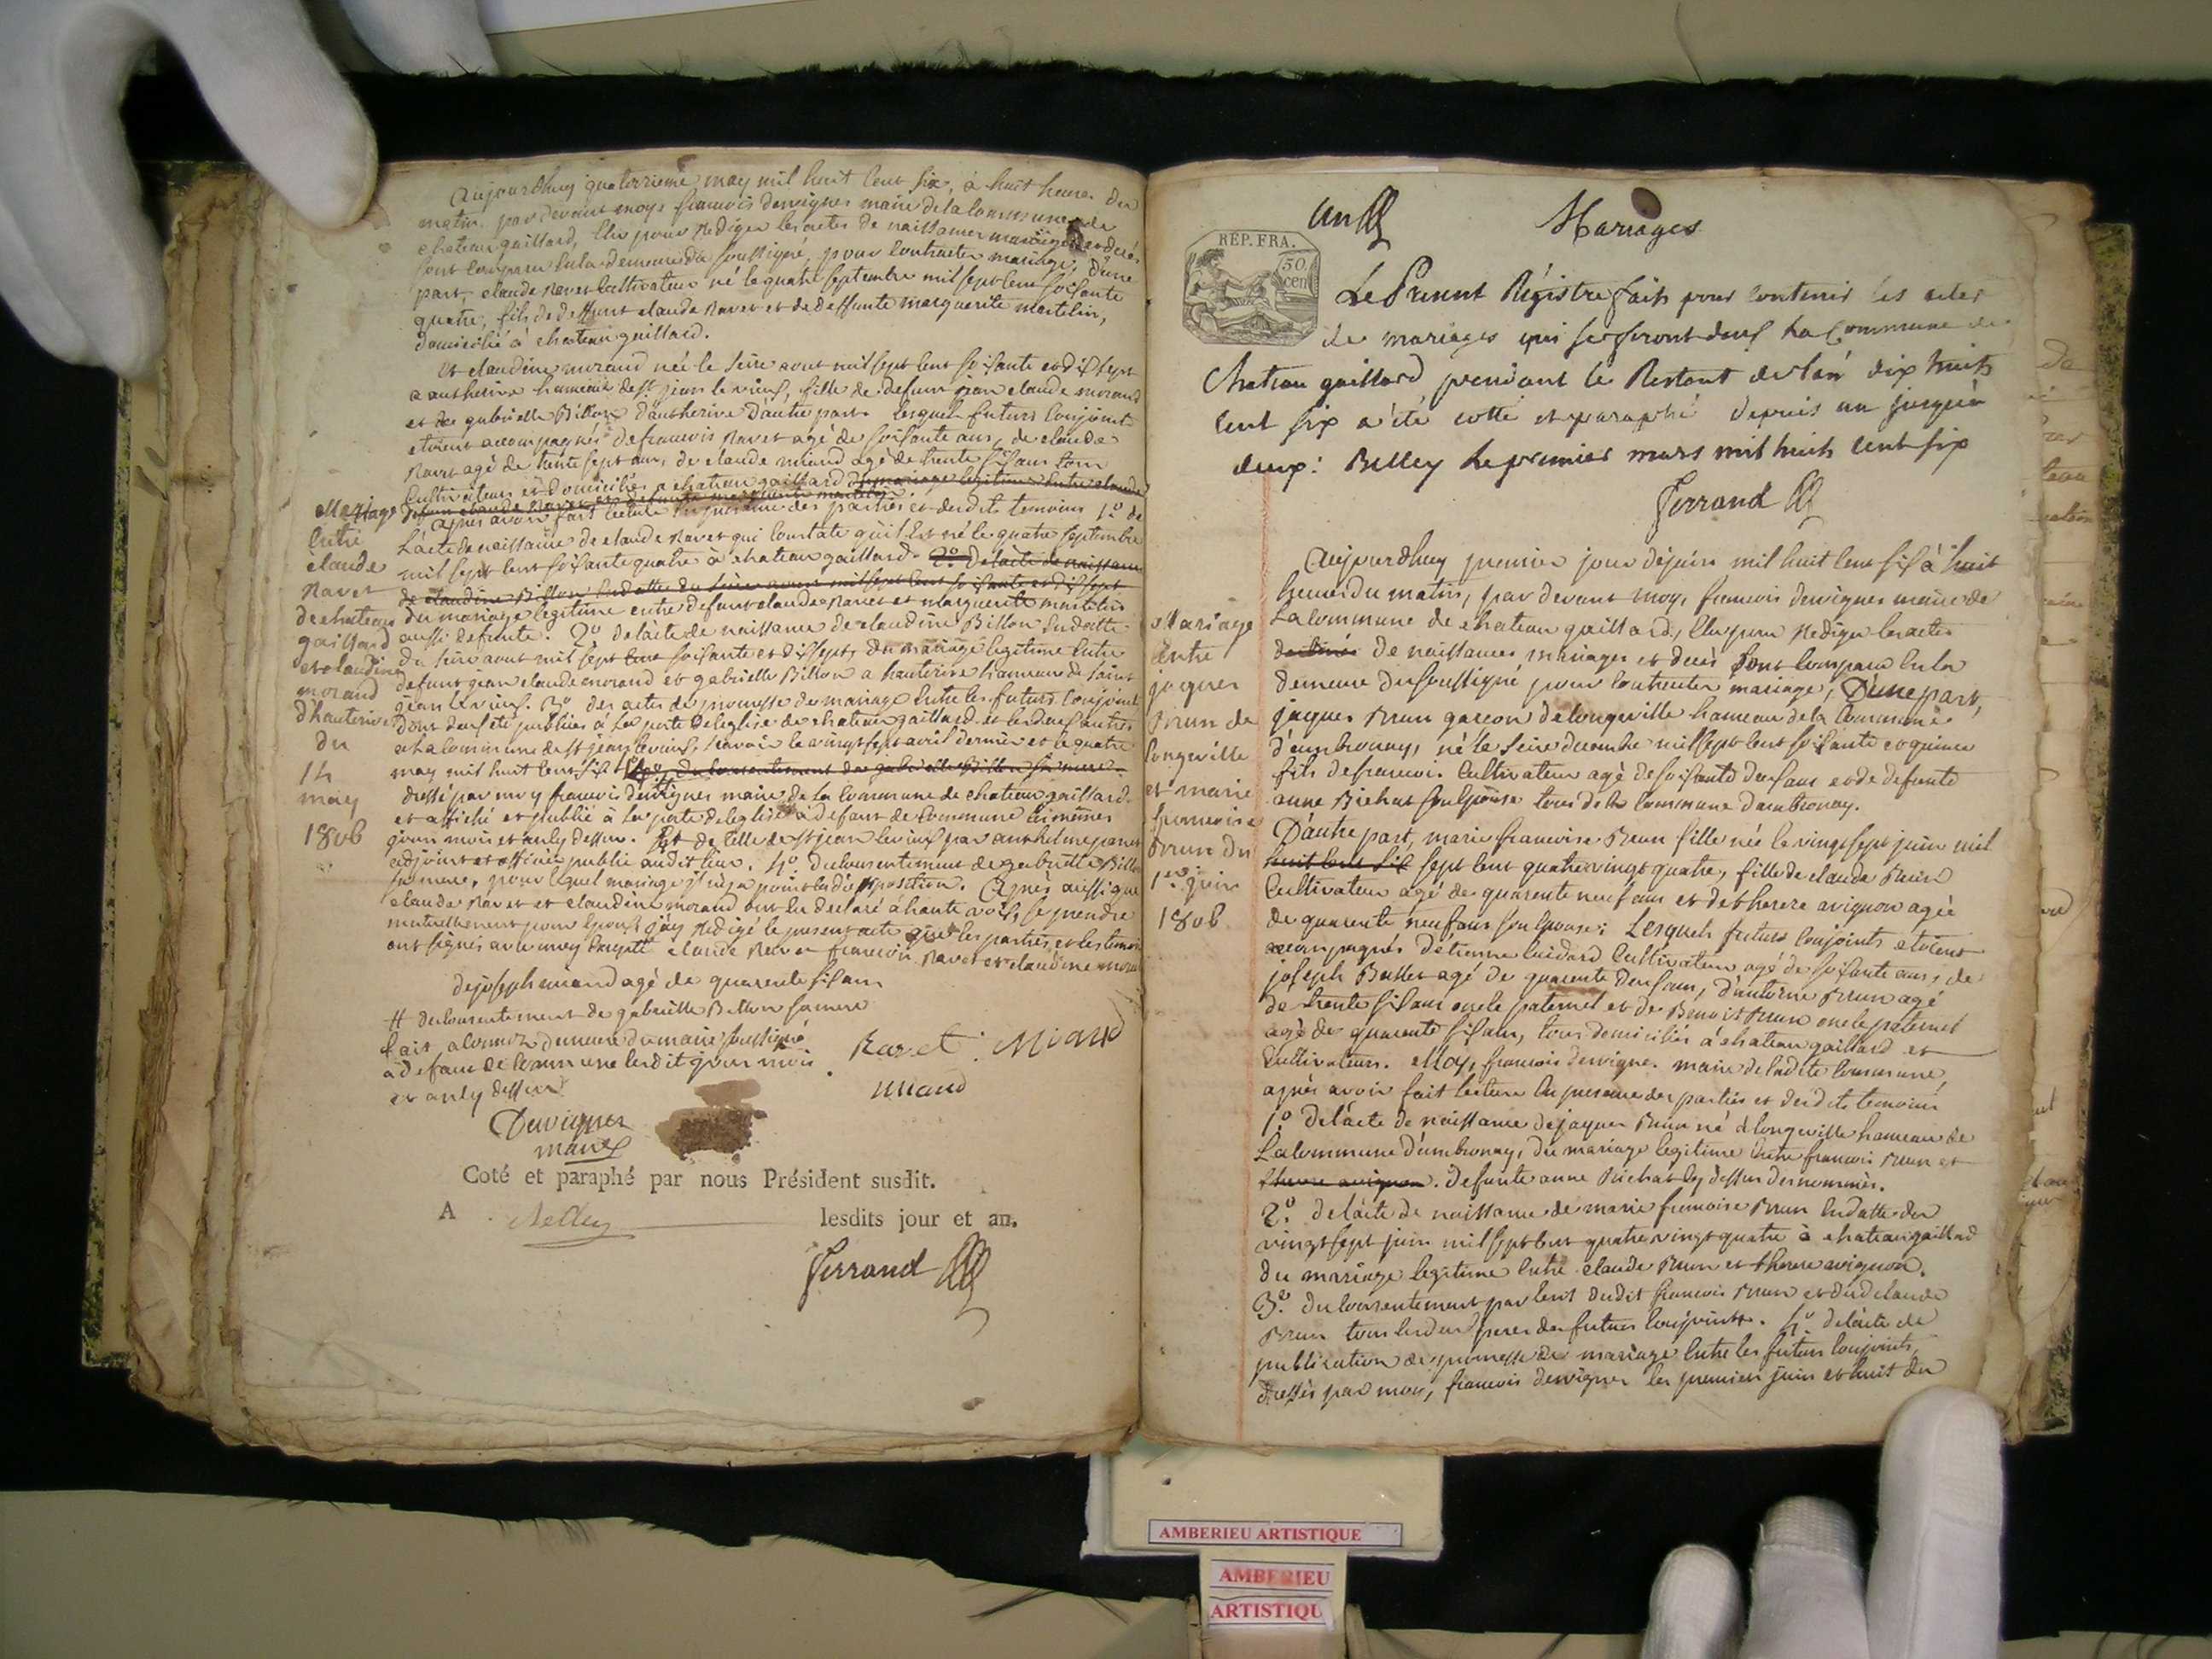 aujourdhuy quatorzieme may mil huit cent six, à huit heures du
matin par devant moy francois dervignes maire de la commune de
chateau gaillard, elu pour rediger les actes de naissances mariages et decés
sont comparu en la demeure du soussigné, pour contracter mariage, d'une
part, claude ravet cultivateur né le quatre septembre mil sept cent soisante
quatre, fils de deffunt claude ravet et de deffunte marguerite martelin,
domicilié à chateau gaillard.
et claudine morand née le seize aout mil sept cent soisante et dissept
a autherive hameau de st jean le vieux, fille de defunt jean claude morand
et de gabrielle Billon d'autherive d'autre part. lesquels futurs conjoints
etoient accompagnés de francois ravet agé de soisante ans, de claude
Ravet agé de trente sept ans, de claude miand agé de trente sis ans tous
cultivateurs et domiciliés a chateau gaillard du mariage legitime entre claude
defunt claude ravet et defunte marguerite martelin.
après avoir fait lecture en presence des parties et desdits temoins 1o de
L'acte de naissance de claude ravet qui constate qu'il est né le quatre septembre
mil sept cent soisante quatre à chateau gaillard. 2o De l'acte de naissance
de claudine Billon en datte du seize aout mil sept cent soisante et dissept
du mariage legitime entre defunt claude Ravet et marguerite martelin
aussi defunte. 2o de l'acte de naissance de claudine Billon en datte
du seize aout mil sept cent soisante et dissept, du mariage legitime entre
defunt jean claude morand et gabrielle Billon a hauterive hameau de saint
jean le vieux. 3o des actes de promesse de mariage entre les futurs conjoints
dont deux été publiées à la porte de leglise de chateau gaillard et les deux autres
a la commune de st jean le vieux, savoir le vingt sept avril dernier et le quatre
may mil huit cent six 4o du consentement de gabrielle Billon sa mere.
dressé par moy francois dervignes maire de la commune de chateau gaillard
et affiché et publié à la porte de leglise à defaut de commune les mêmes
jours mois et an cy dessus. Et de celle de st jean le vieux par anthelme
adjoint et officier public audit lieu. 4o du consentement de gabrielle Billon
sa mere, pour lequel mariage il n'y a point eu d'opposition. Après aussi que
claude Ravet et claudine morand ont eu declaré à haute voix, se prendre
mutuellement pour epoux j'ay redigé le present acte que les parties et les temoins
ont signés avec moy excepté claude Ravet francois Ravet et claudine morand
de joseph miand agé de quarente sis ans
# du consentement de gabrielle Billon sa mere
fait a cormoz demeure du maire soussigné
à defaut de commune lesdit jour mois
et an cy dessus
Ravet Miand
miand
Dervignes
maire
Coté et paraphé par nous Président susdit.
A Belley lesdits jour et an.
Ferrand
Mariage
entre
claude
Ravet
de chateau
gaillard
et claudine
morand
d'hauterive
du
14
may
1806
un
Mariages
REP. FRA.
50
cen
Le Present Régistre fait pour contenir les actes
de mariages qui se feront dans la Commune de
Chateau gaillard pendant le Restant de l'an dix huit
cent six a été cotté et paraphé depuis un jusqu'à
deux: Belley le premier mars mil huit cent six
Ferrand
Aujourdhuy premier jour de juin mil huit cent sis à huit
heures du matin, par devant moy, francois dervignes maire de
La commune de chateau gaillard, elu pour rediger les actes
de naissances mariages et decés sont comparu en la
demeure du soussigné pour contracter mariage, D'une part,
jaques Brun garcon de longeville hameau de la commune
d'ambronay, né le seize decembre mil sept cent soisante et quinze
fils de francois cultivateur agé de soisante deux ans et de defunte
anne Bichat son epouse tous de la commune d'ambronay.
D'autre part, marie francoise Brun fille née le vingt sept juin mil
huit cent six sept cent quatre vingt quatre, fille de claude Brun
cultivateur agé de quarente neuf ans et de therese avignon agée
de quarente neuf ans son epouse; Lesquels futurs conjoints etoient
accompagnés d'etienne cuidard cultivateur agé de soisante ans, de
joseph Ballet agé de quarente deux ans, d'antoine Brun agé
de trente sis ans oncle paternel et de Benoist Brun oncle paternel
agé de quarente sis ans, tous domiciliés à chateau gaillard et
cultivateurs. Moy, francois dervignes maire de ladite commune,
après avoir fait lecture en presence des parties et desdits temoins
1o de l'acte de naissance de jaques Brun né à longeville hameau de
La commune d'ambronay, du mariage legitime entre francois Brun et
therese avignon. defunte anne Bichat cy dessus denommés.
2o de l'acte de naissance de marie francoise Brun en datte du
vingt sept juin mil sept cent quatre vingt quatre à chateau gaillard
du mariage legitime entre claude Brun et therese avignon.
3o du consentement par lent dudit francois Brun et dud claude
Brun tous les deux peres des futurs conjoints. 4o de l'acte de
publication de promesse de mariage entre les futurs conjoints,
dressés par moy, francois dervignes les premiers juin et huit du
Mariage
entre
jaques
Brun de
longeville
et marie
francoise
Brun du
1er juin
1806
AMBERIEU ARTISTIQUE
AMBERIEU
ARTISTIQU